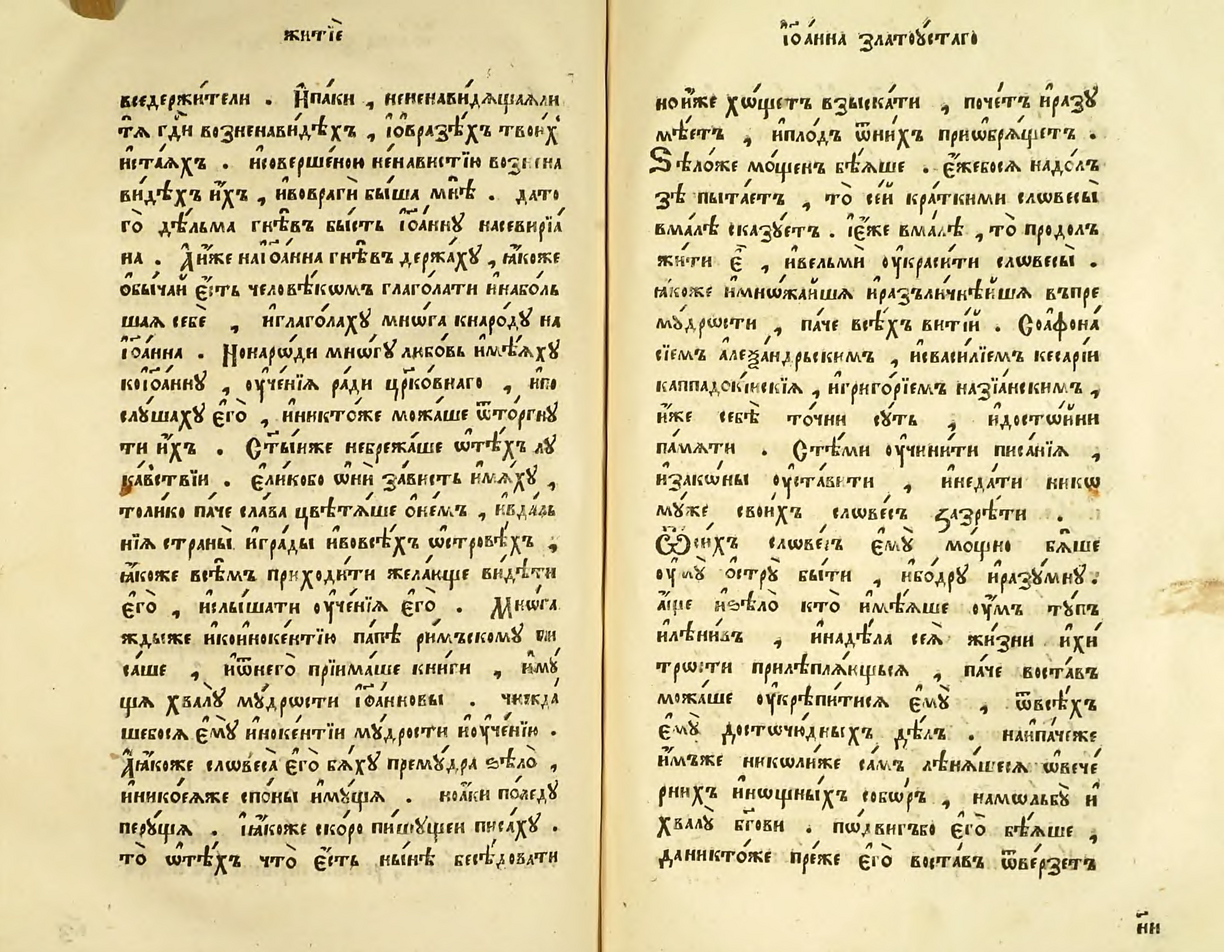 житїѐ
вседержители . И҆паки , нененавидѧщаѧли
тѧ гдⷭ҇и возненавидѣхъ , їѡ҆вразѣхъ твои́хъ
истаѧхъ . исовершеною ненавистїю возне на
видѣхъ и҆хъ , ивовраги быша мнѣ . дато
го̀ дѣльма гнѣвъ бысть і҆ѡа́ннꙋ насевирїа
на . Аи҆же наіѡа́нна гнѣвъ держахꙋ , ꙗкоже
обычай є҆сть человѣкѡмъ глаголати инаболь
шаꙗ себѐ , иглаголахꙋ мнѡга кнародꙋ на
іѡа́нна . Нонарѡди мнѡгꙋ любовь имѣꙗхꙋ
коіѡа́ннꙋ , оу҆че́нїꙗ ради цр҃ко́внаго , ипо
слꙋшахꙋ є҆го̀ , иниктоже можаше ѿторгнꙋ
ти и҆хъ . Ст҃ыиже небрежаше ѡ҆тѣхъ лꙋ
ка́вствїи . є҆ликобо ѡ҆ни̑ за́висть имѧхꙋ ,
толико паче слава цвѣтѧше онемъ , ивдаль
нїѧ страны̀ игра́ды ивовсѣхъ ѡстровѣхъ ,
ꙗкоже всѣмъ приходи́ти жела́юще видѣти
є҆го̀ , ислышати оу҆че́нїꙗ є҆го̀ . Мнѡга
жды́же икоинокентїю папѣ римъскомꙋ пи
саше , иѿнего̀ прїимаше книги , имꙋ
щѧ хвалꙋ̀ мꙋдрости іѡа́нновы . чюжда
шебосѧ є҆мꙋ̀ инокентїи мꙋдрости иоу҆че́нїю .
Аꙗкоже словеса̀ є҆го̀ бѧхꙋ премꙋдра ѕѣло̀ ,
иникоеѧже споны имꙋщѧ . ноаки по ледꙋ
перꙋщѧ . іꙗкоже скоро пишꙋщеи писахꙋ .
то̀ ѡ҆тѣхъ что̀ є҆сть нынѣ бесѣдовати
іѡа́нна златоꙋстаго
ноиже хѡщетъ взыскати , почетъ иразꙋ
мѣетъ , иплодъ ѿнихъ приѡбрѧщетъ .
Ѕѣложе мощенъ бѣѧше . є҆жебосѧ надолъ
зѣ пытаетъ , то̀ сей кра́ткими словесы̀
вмалѣ сказꙋетъ . іє҆же вмалѣ , то продолъ
жити є҆̀ , ивельми оу҆красити словесы̀ .
ꙗкоже имнѡжайшѧ иразъличнѣйшѧ въпре
мꙋдрости , паче всѣхъ витїй . Соафона
сїемъ алеѯа́ндрьскимъ , исвасилїемъ кесарїи
каппадокїискїѧ , игригорїемъ назїанскимъ ,
и҆же себѣ то́чни сꙋть , идостѡйни
памѧти . Стѣми оу҆чинити писа́нїѧ ,
изакѡны оу҆ставити , инедати никѡ
мꙋже своихъ словесъ ꙁазрѣти .
Ѿсихъ словесъ є҆мꙋ̀ мощно бѧше
оу҆мꙋ̀ острꙋ̀ быти , ибодрꙋ иразꙋмнꙋ .
аще иѕѣло кто имѣѧше оу҆мъ тꙋпъ
илѣнивъ , инадѣла сеѧ̀ жизни ихи
трости прилѣплѧющьсѧ , паче воставъ
можаше оу҆крѣпитисѧ є҆мꙋ̀ , ѿвсѣхъ
є҆мꙋ̀ достѡчюдныхъ дѣлъ . наипачеже
имъже николиже самъ лѣнѧшесѧ ѡвече
рнихъ инощныхъ собѡръ , намолбꙋ и
хвалꙋ̀ бг҃ови . подвигъбо є҆го̀ бѣѧше ,
даникто́же преже є҆го̀ воставъ ѿверзетъ
ни